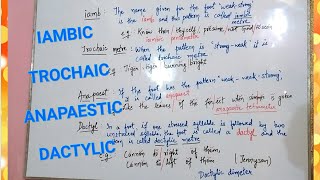 iamb. The name given for the foot "weak-strong"
is the iamb and this pattern is called iambic
metre.
IAMBIC
e.g. Know then thyself, presume not God to scan
iambic pentametre
Trochaic metre When the pattern is 'strong-weak' it is
called trochaic metre.
TROCHAIC
e.g. Tiger! Tiger! burning bright
Anapaest If the foot has the pattern 'weak-weak-strong,
it is called anapaest
ANAPAESTIC
the leaves of the forest when summer is green
anapaestic tetrametre
Dactyl In a foot, if one stressed syllable is followed by two
unstressed syllables, the foot is called a dactyl and the
DACTYLIC
is called dactylic metre.
e.g. Cannon to right of them,
Cannon to left of them (Tennyson)
Dactylic dimeter